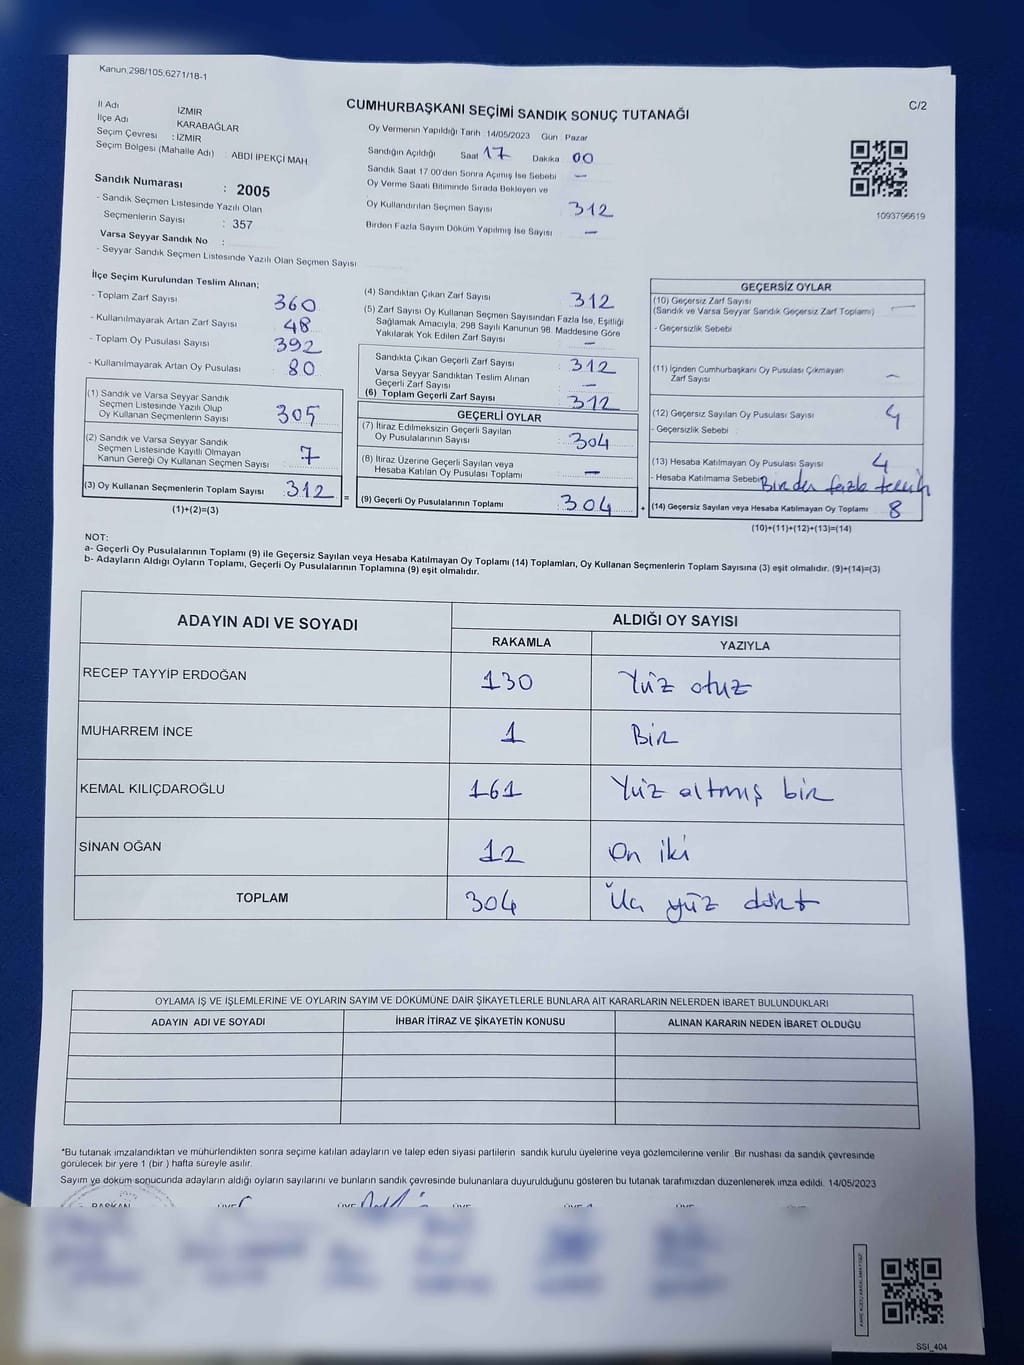 Kanun,298/105,6271/18-1
C/2
CUMHURBAŞKANI SEÇİMİ SANDIK SONUÇ TUTANAĞI
İl Adı İZMİR
İlçe Adı KARABAĞLAR
Seçim Çevresi : İZMİR
Seçim Bölgesi (Mahalle Adı) : ABDİ İPEKÇİ MAH.
Sandık Numarası : 2005
- Sandık Seçmen Listesinde Yazılı Olan
Seçmenlerin Sayısı : 357
Varsa Seyyar Sandık No :
- Seyyar Sandık Seçmen Listesinde Yazılı Olan Seçmen Sayısı
Oy Vermenin Yapıldığı Tarih 14/05/2023 Gün Pazar
Sandığın Açıldığı Saat 17 Dakika 00
Sandık Saat 17 00'den Sonra Açımış İse Sebebi –
Oy Verme Saati Bitiminde Sırada Bekleyen ve
Oy Kullandırılan Seçmen Sayısı 312
Birden Fazla Sayım Döküm Yapılmış İse Sayısı –
1093796619
İlçe Seçim Kurulundan Teslim Alınan;
- Toplam Zarf Sayısı 360
- Kullanılmayarak Artan Zarf Sayısı 48
- Toplam Oy Pusulası Sayısı 392
- Kullanılmayarak Artan Oy Pusulası 80
(1) Sandık ve Varsa Seyyar Sandık
Seçmen Listesinde Yazılı Olup
Oy Kullanan Seçmenlerin Sayısı 305
(2) Sandık ve Varsa Seyyar Sandık
Seçmen Listesinde Kayıtlı Olmayan
Kanun Gereği Oy Kullanan Seçmen Sayısı 7
(3) Oy Kullanan Seçmenlerin Toplam Sayısı 312 =
(1)+(2)=(3)
(4) Sandıktan Çıkan Zarf Sayısı 312
(5) Zarf Sayısı Oy Kullanan Seçmen Sayısından Fazla İse, Eşitliği
Sağlamak Amacıyla; 298 Sayılı Kanunun 98. Maddesine Göre
Yakılarak Yok Edilen Zarf Sayısı –
Sandıkta Çıkan Geçerli Zarf Sayısı 312
Varsa Seyyar Sandıktan Teslim Alınan
Geçerli Zarf Sayısı –
(6) Toplam Geçerli Zarf Sayısı 312
GEÇERLİ OYLAR
(7) İtiraz Edilmeksizin Geçerli Sayılan
Oy Pusulalarının Sayısı 304
(8) İtiraz Üzerine Geçerli Sayılan veya
Hesaba Katılan Oy Pusulası Toplamı –
(9) Geçerli Oy Pusulalarının Toplamı 304 +
GEÇERSİZ OYLAR
(10) Geçersiz Zarf Sayısı
(Sandık ve Varsa Seyyar Sandık Geçersiz Zarf Toplamı) –
- Geçersizlik Sebebi
(11) İçinden Cumhurbaşkanı Oy Pusulası Çıkmayan
Zarf Sayısı –
(12) Geçersiz Sayılan Oy Pusulası Sayısı 4
- Geçersizlik Sebebi
(13) Hesaba Katılmayan Oy Pusulası Sayısı 4
- Hesaba Katılmama Sebebi Birden fazla tercih
(14) Geçersiz Sayılan veya Hesaba Katılmayan Oy Toplamı 8
(10)+(11)+(12)+(13)=(14)
NOT:
a- Geçerli Oy Pusulalarının Toplamı (9) ile Geçersiz Sayılan veya Hesaba Katılmayan Oy Toplamı (14) Toplamları, Oy Kullanan Seçmenlerin Toplam Sayısına (3) eşit olmalıdır. (9)+(14)=(3)
b- Adayların Aldığı Oyların Toplamı, Geçerli Oy Pusulalarının Toplamına (9) eşit olmalıdır.
ADAYIN ADI VE SOYADI ALDIĞI OY SAYISI
RAKAMLA YAZIYLA
RECEP TAYYİP ERDOĞAN 130 Yüz otuz
MUHARREM İNCE 1 Bir
KEMAL KILIÇDAROĞLU 161 Yüz altmış bir
SİNAN OĞAN 12 On iki
TOPLAM 304 Üç yüz dört
OYLAMA İŞ VE İŞLEMLERİNE VE OYLARIN SAYIM VE DÖKÜMÜNE DAİR ŞİKAYETLERLE BUNLARA AİT KARARLARIN NELERDEN İBARET BULUNDUKLARI
ADAYIN ADI VE SOYADI İHBAR İTİRAZ VE ŞİKAYETİN KONUSU ALINAN KARARIN NEDEN İBARET OLDUĞU
*Bu tutanak imzalandıktan ve mühürlendikten sonra seçime katılan adayların ve talep eden siyasi partilerin sandık kurulu üyelerine veya gözlemcilerine verilir. Bir nüshası da sandık çevresinde
görülecek bir yere 1 (bir ) hafta süreyle asılır.
Sayım ve döküm sonucunda adayların aldığı oyların sayılarını ve bunların sandık çevresinde bulunanlara duyurulduğunu gösteren bu tutanak tarafımızdan düzenlenerek imza edildi. 14/05/2023
BAŞKAN ÜYE ÜYE ÜYE ÜYE ÜYE
SSI_404